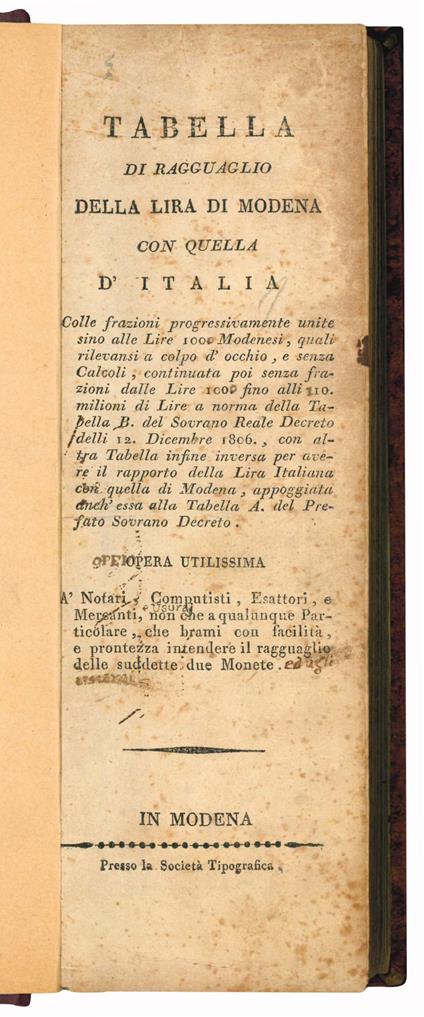 TABELLA
DI RAGGUAGLIO
DELLA LIRA DI MODENA
CON QUELLA
D' ITALIA
Colle frazioni progressivamente unite
sino alle Lire 1000 Modenesi, quali
rilevansi a colpo d' occhio, e senza
Calcoli, continuata poi senza fra-
zioni dalle Lire 1000 fino alli 110.
milioni di Lire a norma della Ta-
bella B. del Sovrano Reale Decreto
delli 12. Dicembre 1806., con al-
tra Tabella infine inversa per ave-
re il rapporto della Lira Italiana
con quella di Modena, appoggiata
anch' essa alla Tabella A. del Pre-
fato Sovrano Decreto.
OPERA UTILISSIMA
A' Notari, Computisti, Esattori, e
e Usuraj
Mercanti, non che a qualunque Par-
ticolare, che brami con facilità,
e prontezza intendere il ragguaglio
delle suddette due Monete. ed agli
IN MODENA
Presso la Società Tipografica.